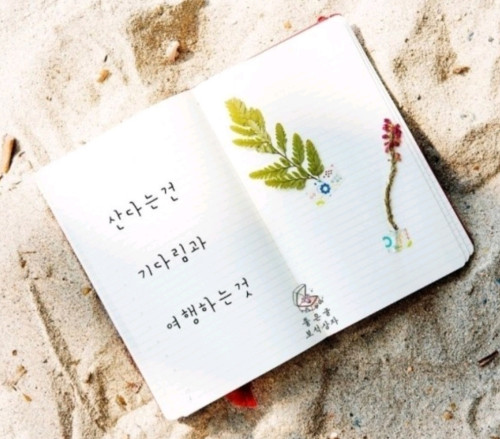 산다는건
기다림과
여행하는것
좋은글
보석상자